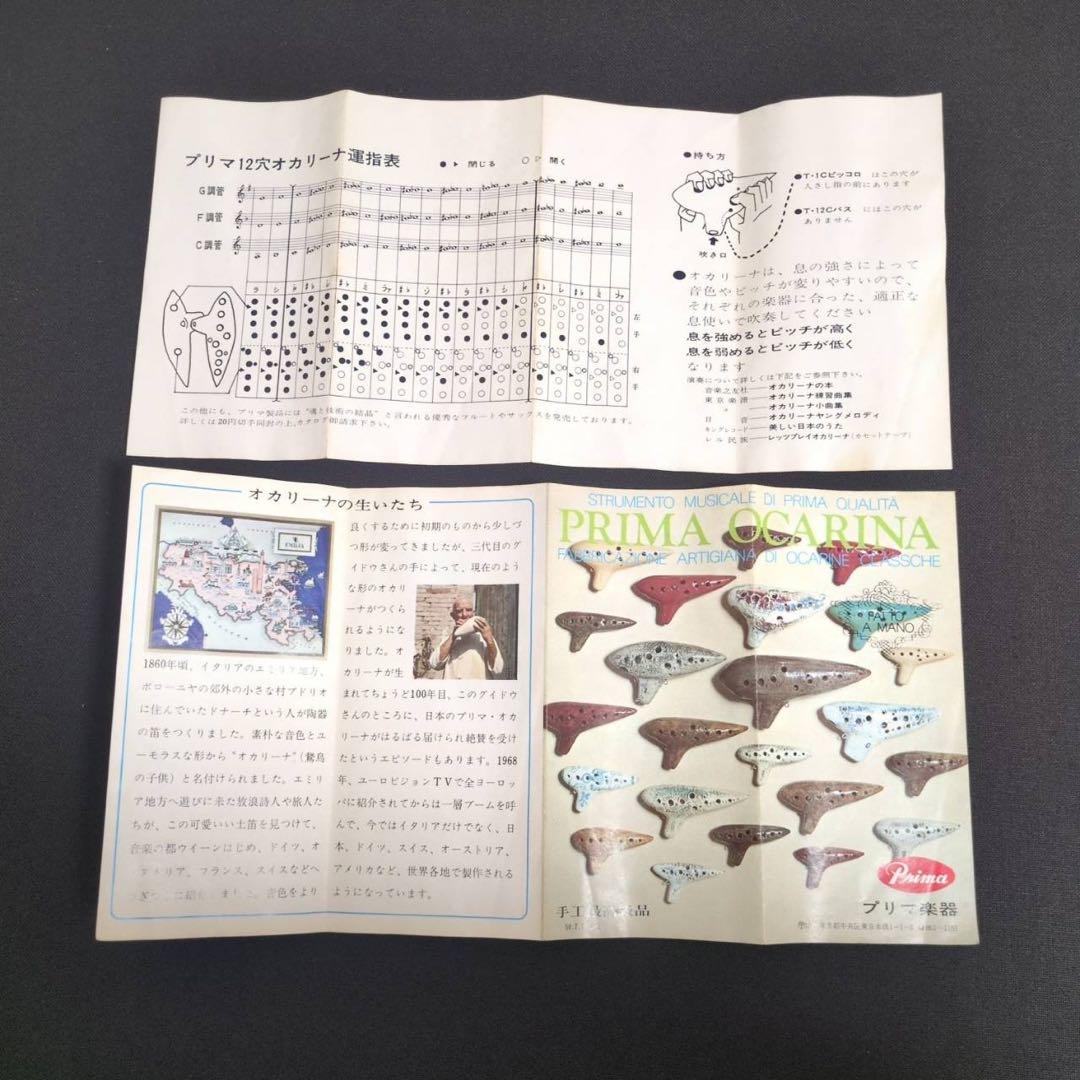 プリマ12穴オカリーナ運指表
●▶ 閉じる ○▷ 開く
G調管
F調管
C調管
ラ シ ド ♯♭ レ ♯♭ ミ ファ ♯♭ ソ ♯♭ ラ ♯♭ シ ド ♯♭ レ ♯♭ ミ ファ
左手
右手
この他にも、プリマ製品には“魂と技術の結晶”と言われる優秀なフルートやサックスを発売しております。
詳しくは20円切手同封の上、カタログ御請求下さい。
●持ち方
●T・1Cピッコロ はこの穴が
人さし指の前にあります
●T・12Cバス にはこの穴が
ありません
吹き口
●オカリーナは、息の強さによって
音色やピッチが変りやすいので、
それぞれの楽器に合った、適正な
息使いで吹奏してください
息を強めるとピッチが高く
息を弱めるとピッチが低く
なります
演奏について詳しくは下記をご参照下さい。
音楽之友社―オカリーナの本
東京楽譜―オカリーナ練習曲集
〃―オカリーナ小曲集
日音―オカリーナヤングメロディ
キングレコード―美しい日本のうた
レル民族―レッツプレイオカリーナ(カセットテープ)
オカリーナの生いたち
EMILIA
1860年頃、イタリアのエミリア地方、
ボローニヤの郊外の小さな村ブドリオ
に住んでいたドナーチという人が陶器
の笛をつくりました。素朴な音色とユ
ーモラスな形から“オカリーナ”(鵞鳥
の子供)と名付けられました。エミリ
ア地方へ遊びに来た放浪詩人や旅人た
ちが、この可愛いい土笛を見つけて、
音楽の都ウイーンはじめ、ドイツ、オ
タリア、フランス、スイスなどへ
つぎ に紹 しました。音色をより
良くするために初期のものから少しづ
つ形が変ってきましたが、三代目のグ
イドウさんの手によって、現在のよう
な形のオカリ
ーナがつくら
れるようにな
りました。オ
カリーナが生
まれてちょうど100年目、このグイドウ
さんのところに、日本のプリマ・オカ
リーナがはるばる届けられ絶賛を受け
たというエピソードもあります。1968
年、ユーロビジョンTVで全ヨーロッ
パに紹介されてからは一層ブームを呼
んで、今ではイタリアだけでなく、日
本、ドイツ、スイス、オーストリア、
アメリカなど、世界各地で製作される
ようになっています。
STRUMENTO MUSICALE DI PRIMA QUALITÀ
PRIMA OCARINA
FABBRICAZIONE ARTIGIANA DI OCARINE CLASSCHE
FATTO
A MANO
Prima
手工 品
プリマ楽器